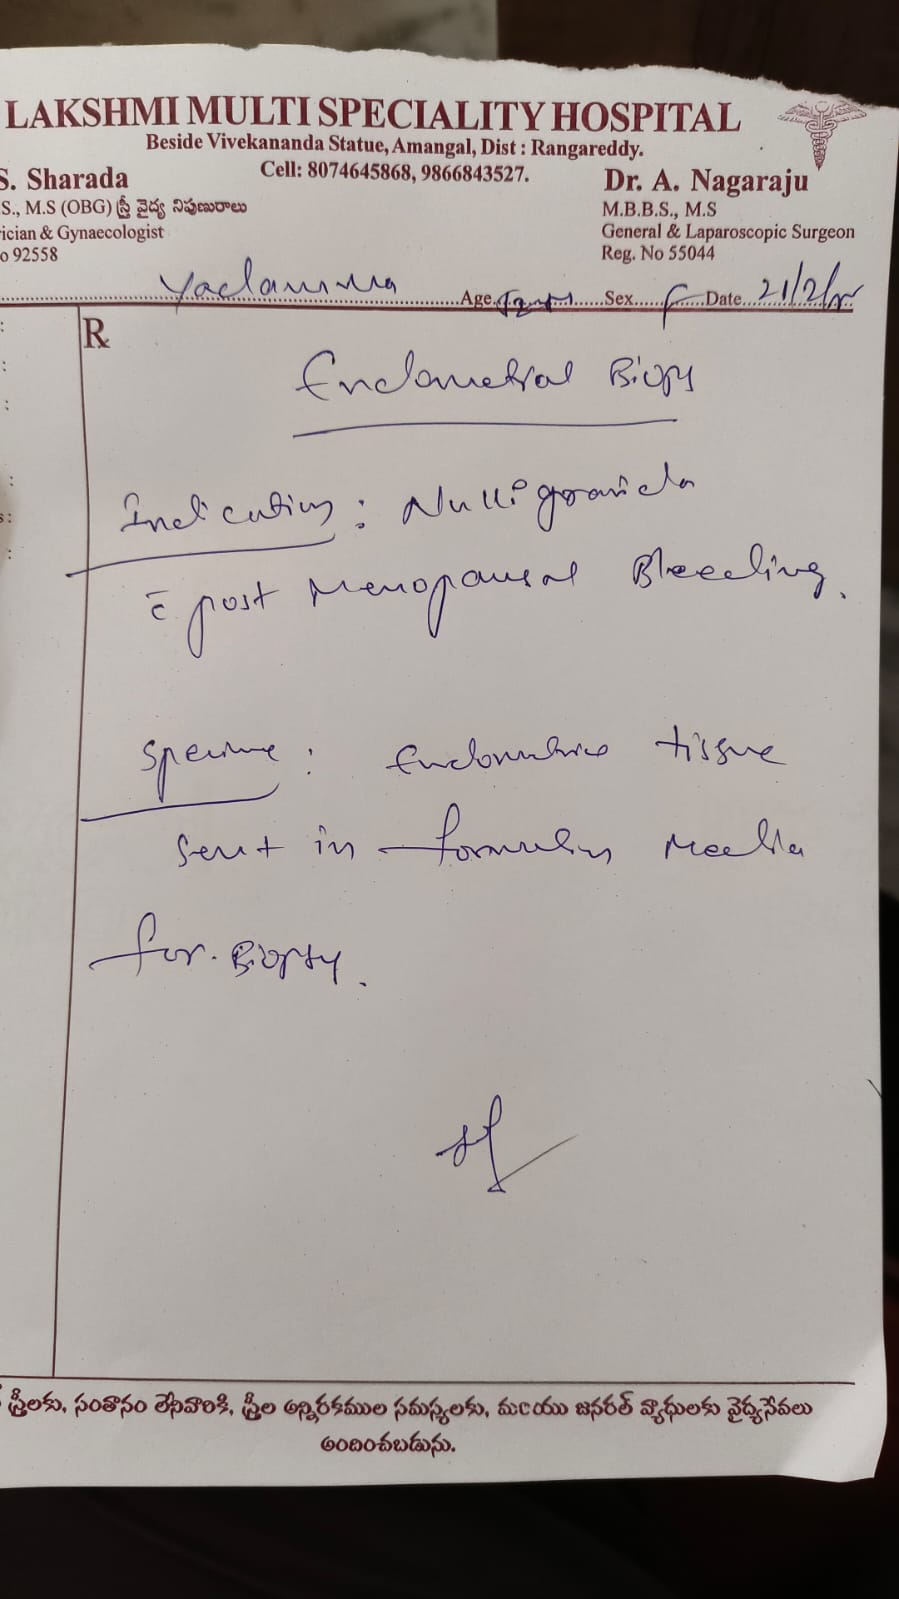 LAKSHMI MULTI SPECIALITY HOSPITAL
Beside Vivekananda Statue, Amangal, Dist : Rangareddy.
Cell: 8074645868, 9866843527.
S. Sharada
.S., M.S (OBG) స్త్రీ వైద్య నిపుణురాలు
ician & Gynaecologist
o 92558
Dr. A. Nagaraju
M.B.B.S., M.S
General & Laparoscopic Surgeon
Reg. No 55044
Yadamma Age Sex F Date 21/2/
R
Endometrial Biopsy
Indication : Nulligravida
c̄ post Menopausal Bleeding.
Specimen : Endometrial tissue
sent in formalin Media
for Biopsy.
స్త్రీలకు, సంతానం లేనివారికి, స్త్రీల అన్నిరకముల సమస్యలకు, మరియు జనరల్ వ్యాధులకు వైద్యసేవలు
అందించబడును.